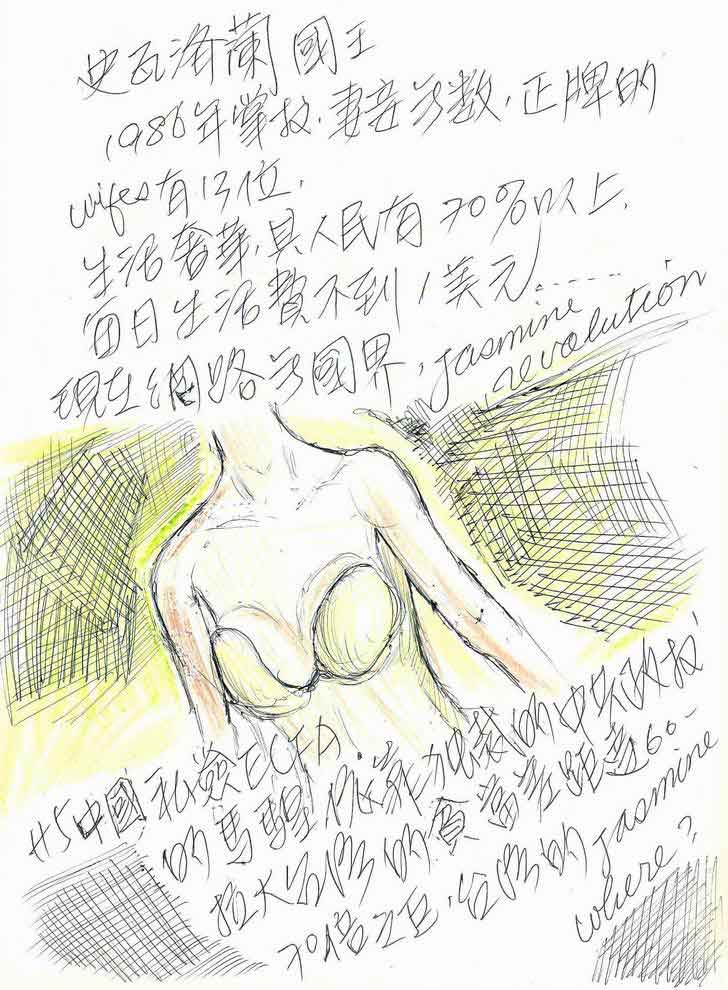 史瓦洛蘭國王
1986年掌权.妻妾多数,正牌的
wifes有13位.
生活奢華,具人民有70%以上,
每日生活費不到1美元......
現在網路多國界, Jasmine
revolution
与中國私簽ECFA.
的馬 的中共政权
拉大台灣的貧富差距達60-
70倍之巨,台灣的Jasmine
where?